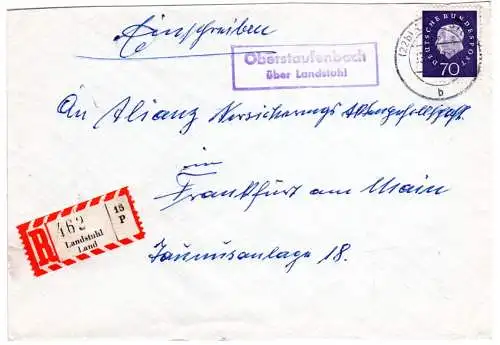 Einschreiben
Oberstaufenbach
über Landstuhl
(22b)
b
DEUTSCHE BUNDESPOST
70
An Allianz Versicherungs Aktengesellschaft.
in
Frankfurt am Main
Taunusanlage 18.
R
462
16
P
Landstuhl
Land